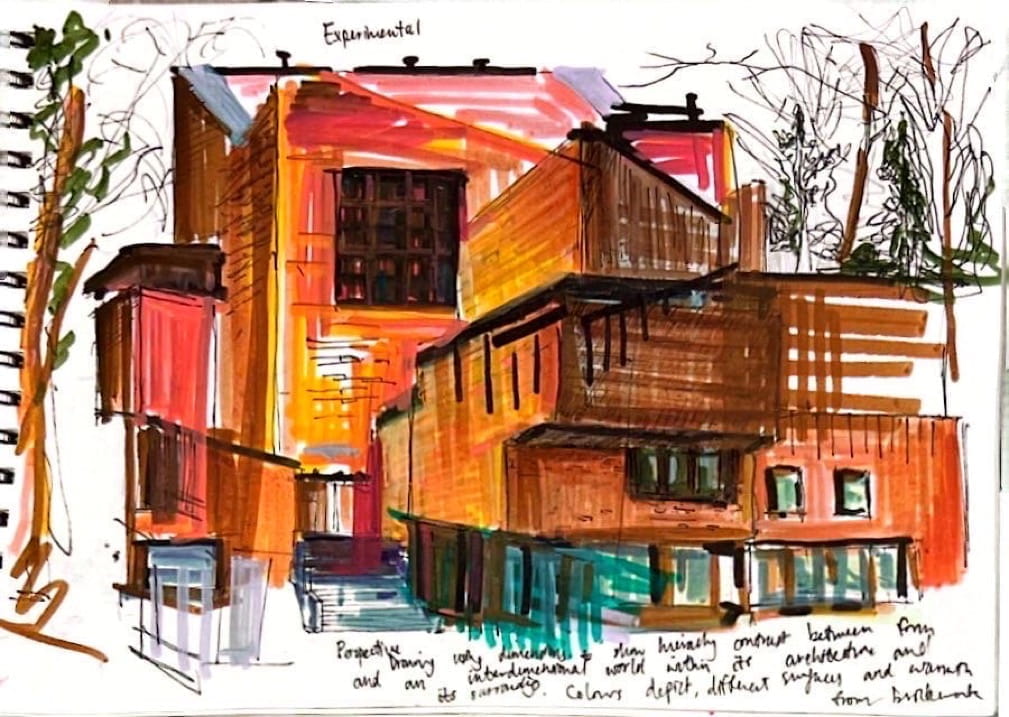 Experimental
Perspective
Drawing with dimensions to show hierarchy contrast between form
and an interdimensional world within its architecture and
its surroundings. Colours depict, different surfaces and warmth
from brickwork